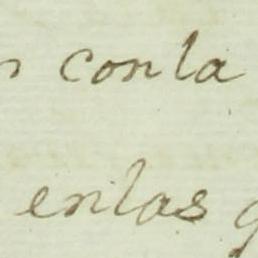 conla
enlas